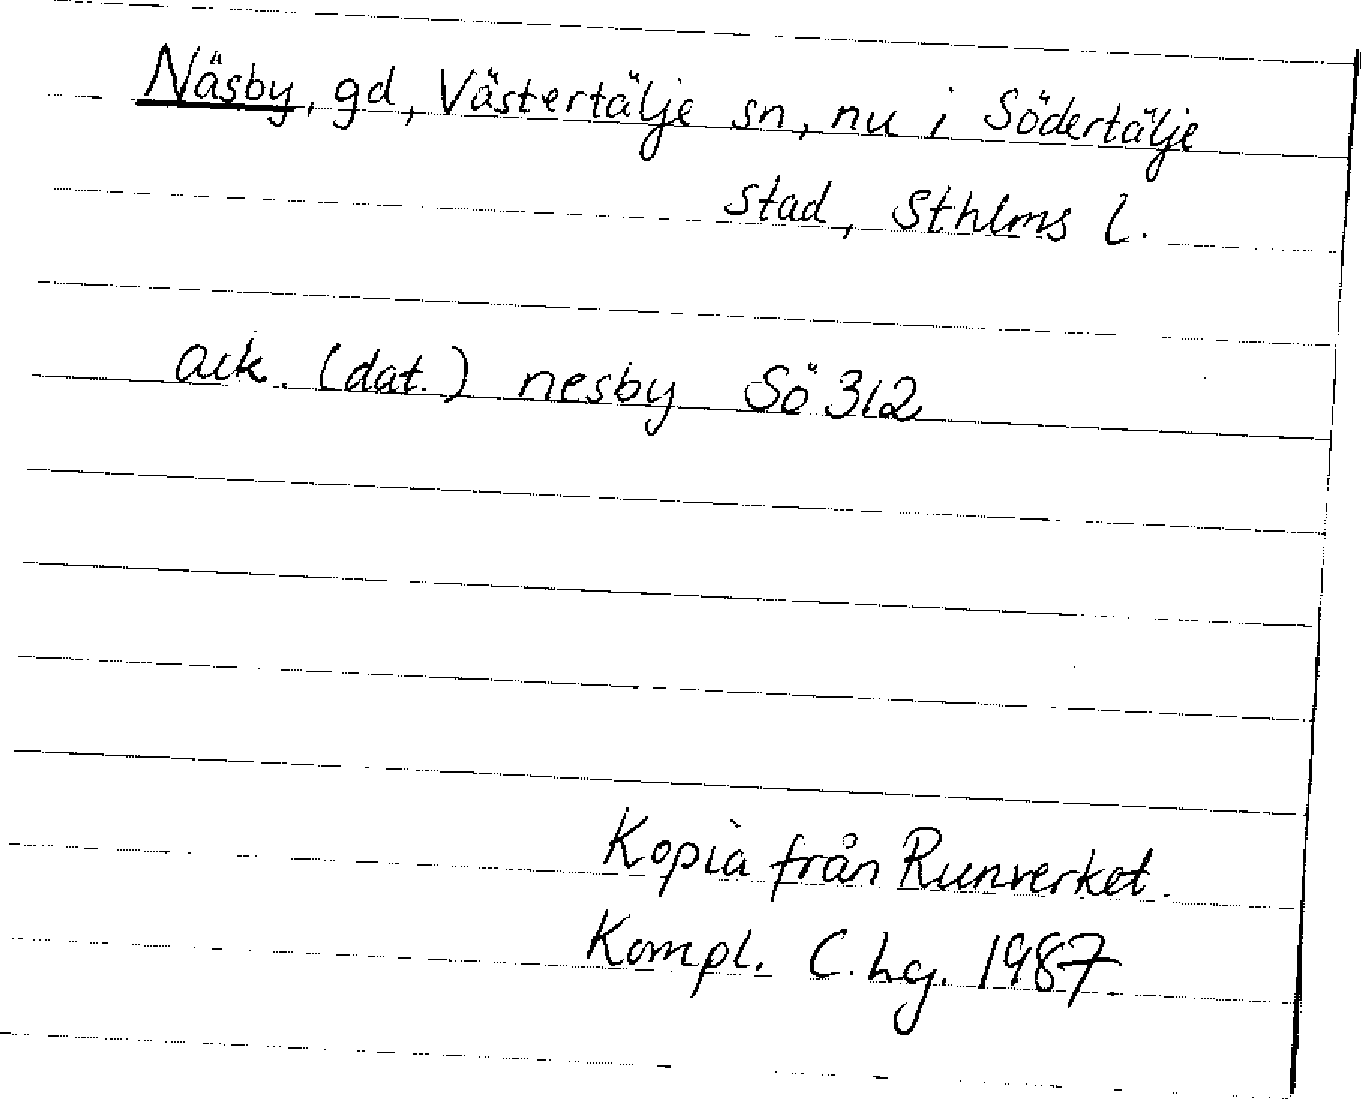 Näsby, gd, Västertälje sn, nu i Södertälje
stad, Sthlms l.
ack. (dat.) nesby Sö 312
Kopia från Runverket.
Kompl. C. Lg. 1987